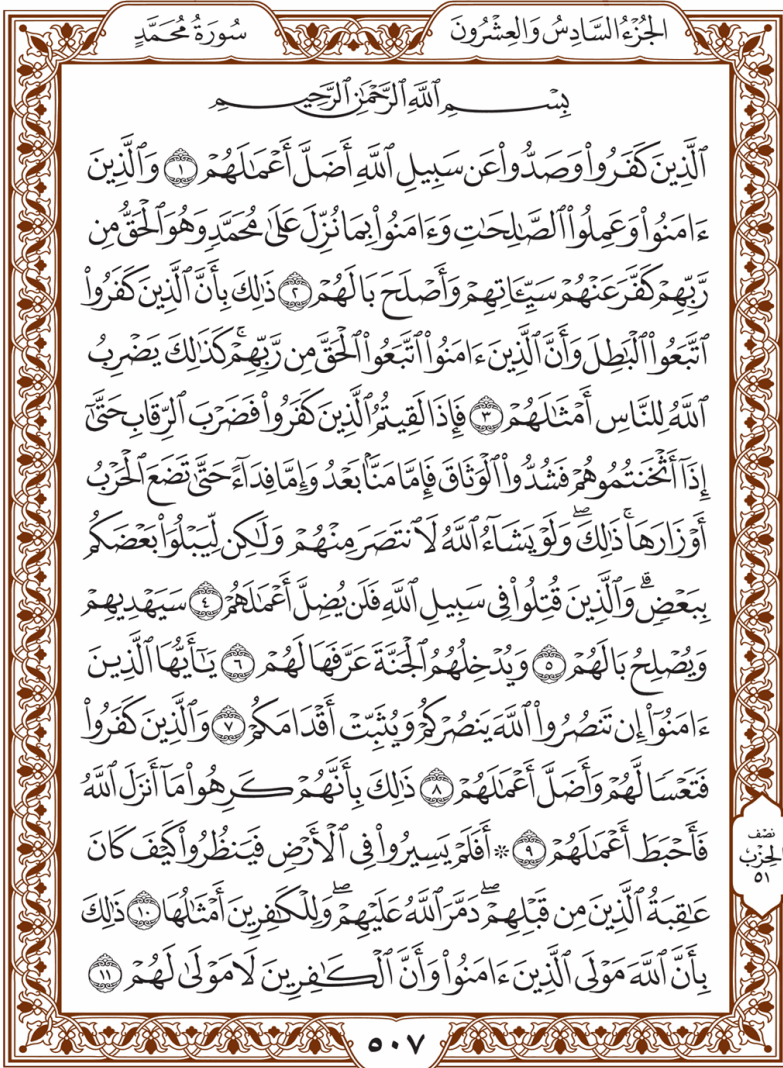 الجُزْءُ السَّادِسُ وَالعِشْرُونَ
سُورَةُ مُحَمَّدٍ
بِسْمِ ٱللَّهِ ٱلرَّحْمَٰنِ ٱلرَّحِيمِ
ٱلَّذِينَ كَفَرُواْ وَصَدُّواْ عَن سَبِيلِ ٱللَّهِ أَضَلَّ أَعْمَٰلَهُمْ ١ وَٱلَّذِينَ
ءَامَنُواْ وَعَمِلُواْ ٱلصَّٰلِحَٰتِ وَءَامَنُواْ بِمَا نُزِّلَ عَلَىٰ مُحَمَّدٖ وَهُوَ ٱلْحَقُّ مِن
رَّبِّهِمْ كَفَّرَ عَنْهُمْ سَيِّـَٔاتِهِمْ وَأَصْلَحَ بَالَهُمْ ٢ ذَٰلِكَ بِأَنَّ ٱلَّذِينَ كَفَرُواْ
ٱتَّبَعُواْ ٱلْبَٰطِلَ وَأَنَّ ٱلَّذِينَ ءَامَنُواْ ٱتَّبَعُواْ ٱلْحَقَّ مِن رَّبِّهِمْۚ كَذَٰلِكَ يَضْرِبُ
ٱللَّهُ لِلنَّاسِ أَمْثَٰلَهُمْ ٣ فَإِذَا لَقِيتُمُ ٱلَّذِينَ كَفَرُواْ فَضَرْبَ ٱلرِّقَابِ حَتَّىٰٓ
إِذَآ أَثْخَنتُمُوهُمْ فَشُدُّواْ ٱلْوَثَاقَ فَإِمَّا مَنَّۢا بَعْدُ وَإِمَّا فِدَآءً حَتَّىٰ تَضَعَ ٱلْحَرْبُ
أَوْزَارَهَاۚ ذَٰلِكَۖ وَلَوْ يَشَآءُ ٱللَّهُ لَٱنتَصَرَ مِنْهُمْ وَلَٰكِن لِّيَبْلُوَاْ بَعْضَكُم
بِبَعْضٖۗ وَٱلَّذِينَ قُتِلُواْ فِي سَبِيلِ ٱللَّهِ فَلَن يُضِلَّ أَعْمَٰلَهُمْ ٤ سَيَهْدِيهِمْ
وَيُصْلِحُ بَالَهُمْ ٥ وَيُدْخِلُهُمُ ٱلْجَنَّةَ عَرَّفَهَا لَهُمْ ٦ يَٰٓأَيُّهَا ٱلَّذِينَ
ءَامَنُوٓاْ إِن تَنصُرُواْ ٱللَّهَ يَنصُرْكُمْ وَيُثَبِّتْ أَقْدَامَكُمْ ٧ وَٱلَّذِينَ كَفَرُواْ
فَتَعْسٗا لَّهُمْ وَأَضَلَّ أَعْمَٰلَهُمْ ٨ ذَٰلِكَ بِأَنَّهُمْ كَرِهُواْ مَآ أَنزَلَ ٱللَّهُ
فَأَحْبَطَ أَعْمَٰلَهُمْ ٩ ۞ أَفَلَمْ يَسِيرُواْ فِي ٱلْأَرْضِ فَيَنظُرُواْ كَيْفَ كَانَ
عَٰقِبَةُ ٱلَّذِينَ مِن قَبْلِهِمْۖ دَمَّرَ ٱللَّهُ عَلَيْهِمْۖ وَلِلْكَٰفِرِينَ أَمْثَٰلُهَا ١٠ ذَٰلِكَ
بِأَنَّ ٱللَّهَ مَوْلَى ٱلَّذِينَ ءَامَنُواْ وَأَنَّ ٱلْكَٰفِرِينَ لَا مَوْلَىٰ لَهُمْ ١١
نِصْف
الحِزْب
٥١
٥٠٧